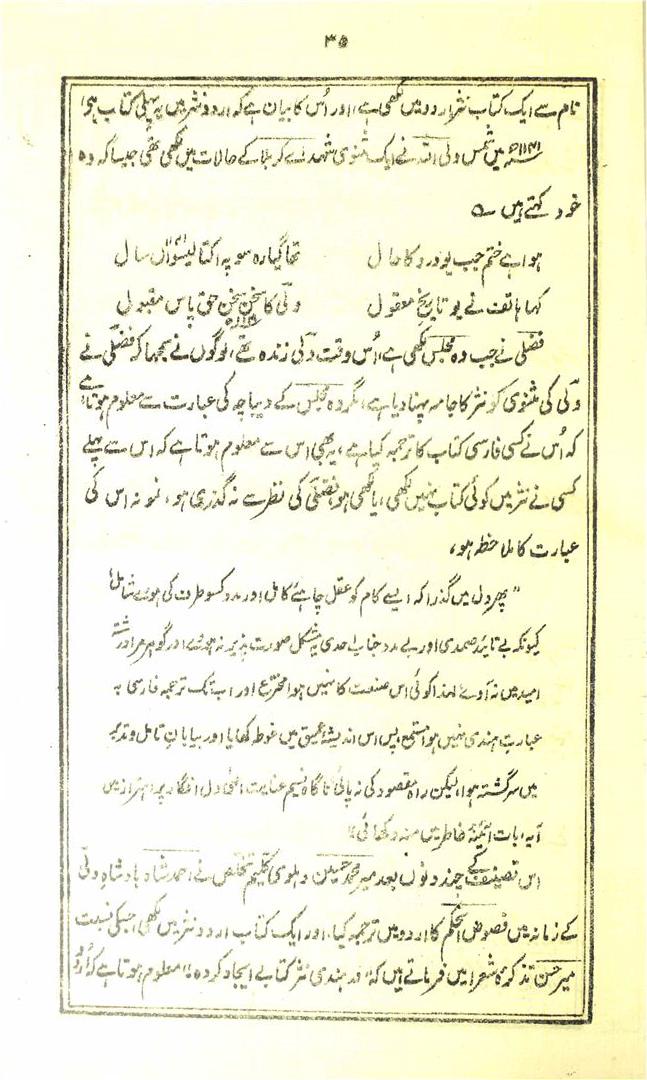 ۳۵
نام سے ایک کتاب نثر اردو میں لکھی ہے، اور اُس کا بیان ہے کہ اردو نثر میں یہ پہلی کتاب ہے،
۱۱۴۱ھ میں شمس ولی اللہ نے ایک مثنوی شہدائے کربلا کے حالات میں لکھی تھی جیسا کہ وہ
خود کہتے ہیں ؎
ہوا ہے ختم جب یو درد کا حال
تھا گیارہ سو پہ اکتالیسواں سال
کہا ہاتف نے یو تاریخ معقول
ولی کا سخن سخن حق پاس مقبول
فضلی نے جب دہ مجلس لکھی ہے، اُس وقت ولی زندہ تھے، لوگوں نے سمجھا کہ فضلی نے
ولی کی مثنوی کو نثر کا جامہ پہنا دیا ہے، مگر دہ مجلس کے دیباچہ کی عبارت سے معلوم ہوتا ہے
کہ اُس نے کسی فارسی کتاب کا ترجمہ کیا ہے، یہ بھی اس سے معلوم ہوتا ہے کہ اس سے پہلے
کسی نے نثر میں کوئی کتاب نہیں لکھی، یا لکھی ہو، فضلی کی نظر سے نہ گذری ہو، نمونہ اس کی
عبارت کا ملاحظہ ہو،
" پھر دل میں گذرا کہ ایسے کام کو عقل چاہئے کامل اور مدد کسو طرف کی ہوے شامل
کیونکہ بے تائید صمدی اور بے مدد جناب احدی یہ مشکل صورت پذیر نہ ہووے اور گوہر مراد رشتۂ
امید میں نہ آوے لہذا کوئی اس صنعت کا نہیں ہوا مخترع اور اب تک ترجمہ فارسی بہ
عبارت ہندی نہیں ہوا مستمع پس اس اندیشۂ عمیق میں غوطہ کھایا اور بیابان تامل و تدبر
میں سرگشتہ ہوا، لیکن راہ مقصود کی نہ پائی ناگاہ نسیم عنایت الٰہی دل افگار پر اہتزاز میں
آ، یہ بات آئینۂ خاطر میں منہ دکھائی"
اس تصنیف کے چند دنوں بعد میر محمد حسین دہلوی کلیم تخلص نے احمد شاہ بادشاہ دلی
کے زمانہ میں فصوص الحکم کا اردو میں ترجمہ کیا، اور ایک کتاب اردو نثر میں لکھی، جسکی نسبت
میر حسن تذکرۂ شعرا میں فرماتے ہیں کہ "در ہندی نثر کتابے ایجاد کردہ"، معلوم ہوتا ہے کہ اُردو